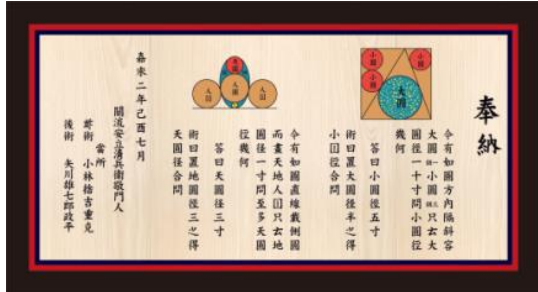 奉納
今有如圖方内隔斜容
大圓一小圓三只云大
圓径一十寸問小圓径
幾何
答曰小圓径五寸
術曰置大圓径半之得
小圓径合問
小圓
小圓
小圓
大圓
今有如圖直線載側圓
而畫天地人圓只云地
圓径一寸問至多天圓
径幾何
答曰天圓径三寸
術曰置地圓径三之得
天圓径合問
人圓
天圓
人圓
嘉永二年己酉七月
關流安立清兵衛敬門人
當所
前術 小林捨吉重克
後術 矢川雄七郎政平